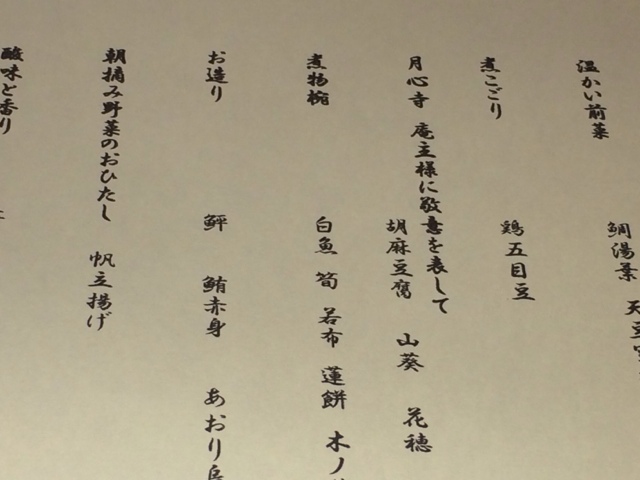 温かい前菜
鯛湯葉 天豆
煮こごり
鶏五目豆
月心寺 庵主様に敬意を表して
胡麻豆腐 山葵 花穂
煮物椀
白魚 筍 若布 蓮餅 木ノ
お造り
鮃 鮪赤身 あおり
朝摘み野菜のおひたし
帆立揚げ
酸味と香り